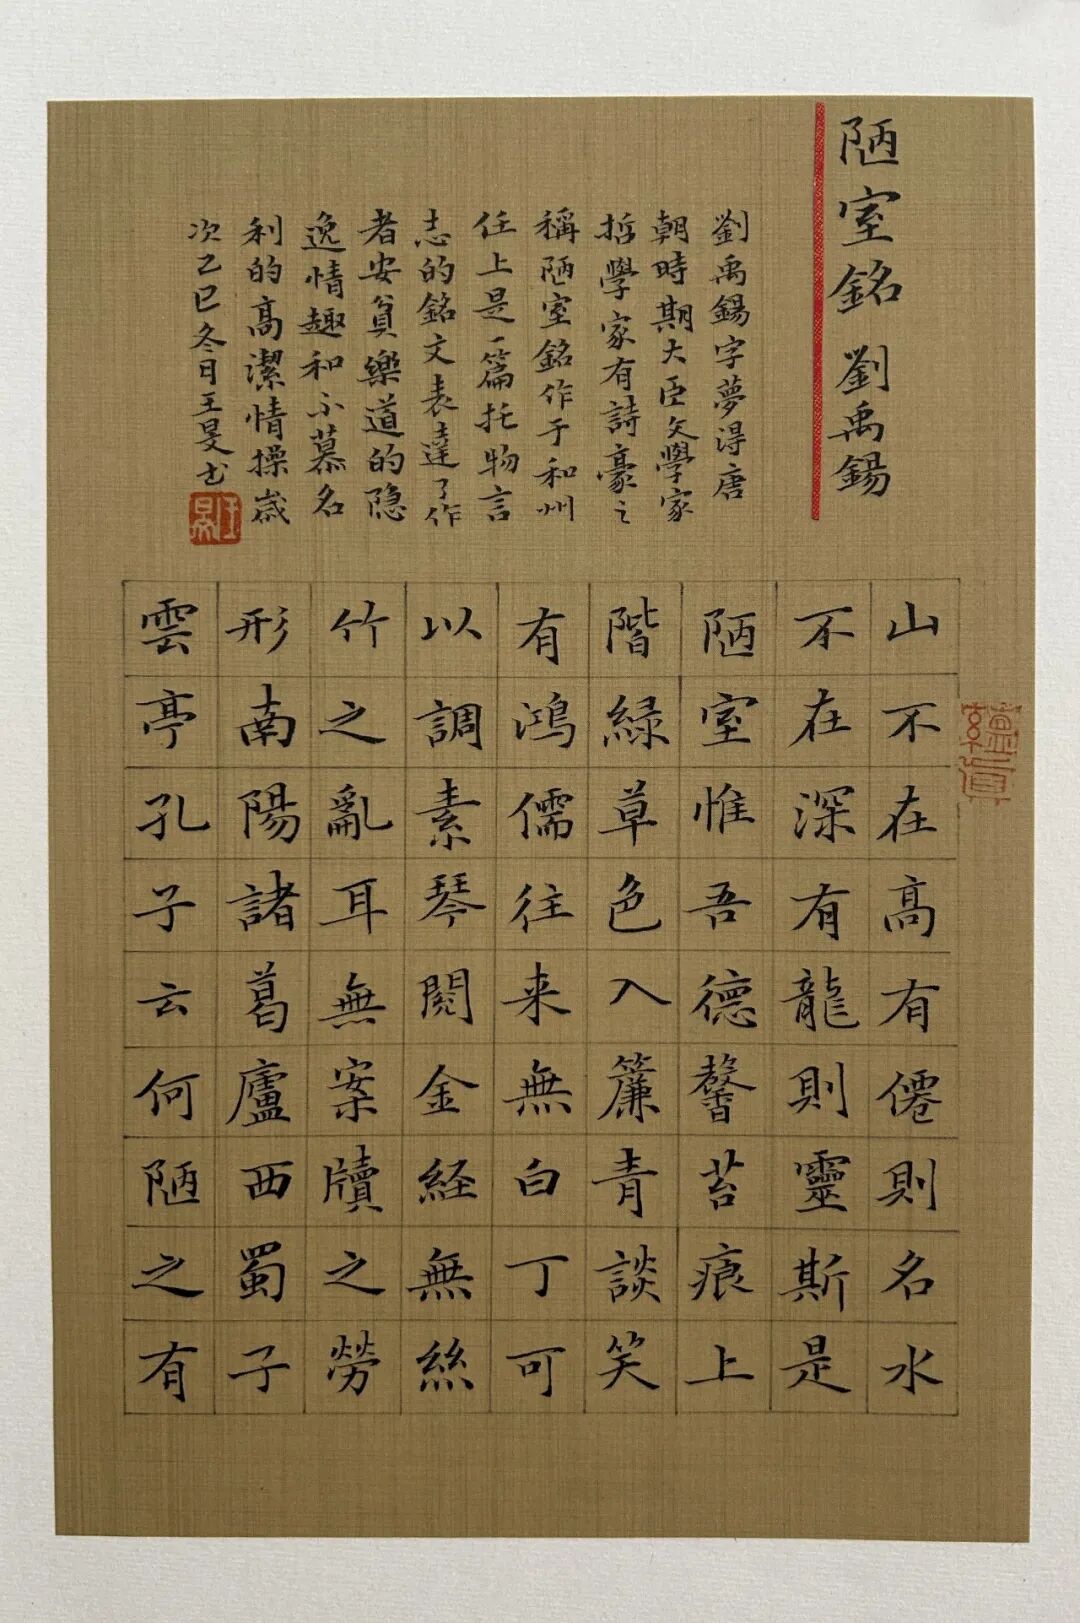 陋室銘 劉禹錫
劉禹錫字夢得唐
朝時期大臣文學家
哲學家有詩豪之
稱陋室銘作于和州
任上是一篇托物言
志的銘文表達了作
者安貧樂道的隐
逸情趣和不慕名
利的高潔情操歲
次乙巳冬日王旻书
王旻
山不在高有僊則名水
不在深有龍則靈斯是
陋室惟吾德馨苔痕上
階緑草色入簾青談笑
有鴻儒往来無白丁可
以調素琴閲金経無絲
竹之亂耳無案牘之勞
形南陽諸葛廬西蜀子
雲亭孔子云何陋之有